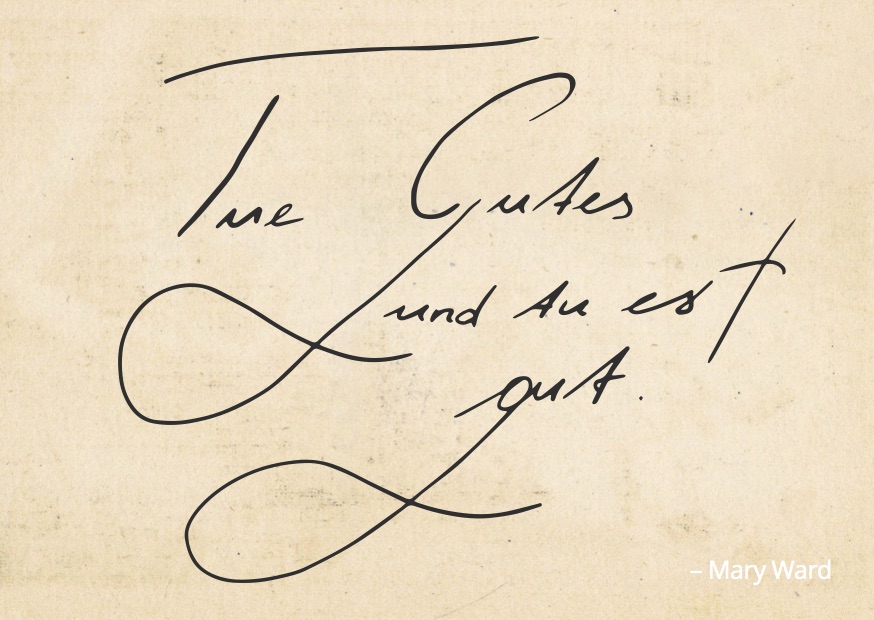 Tue Gutes
und tu es
gut.
– Mary Ward